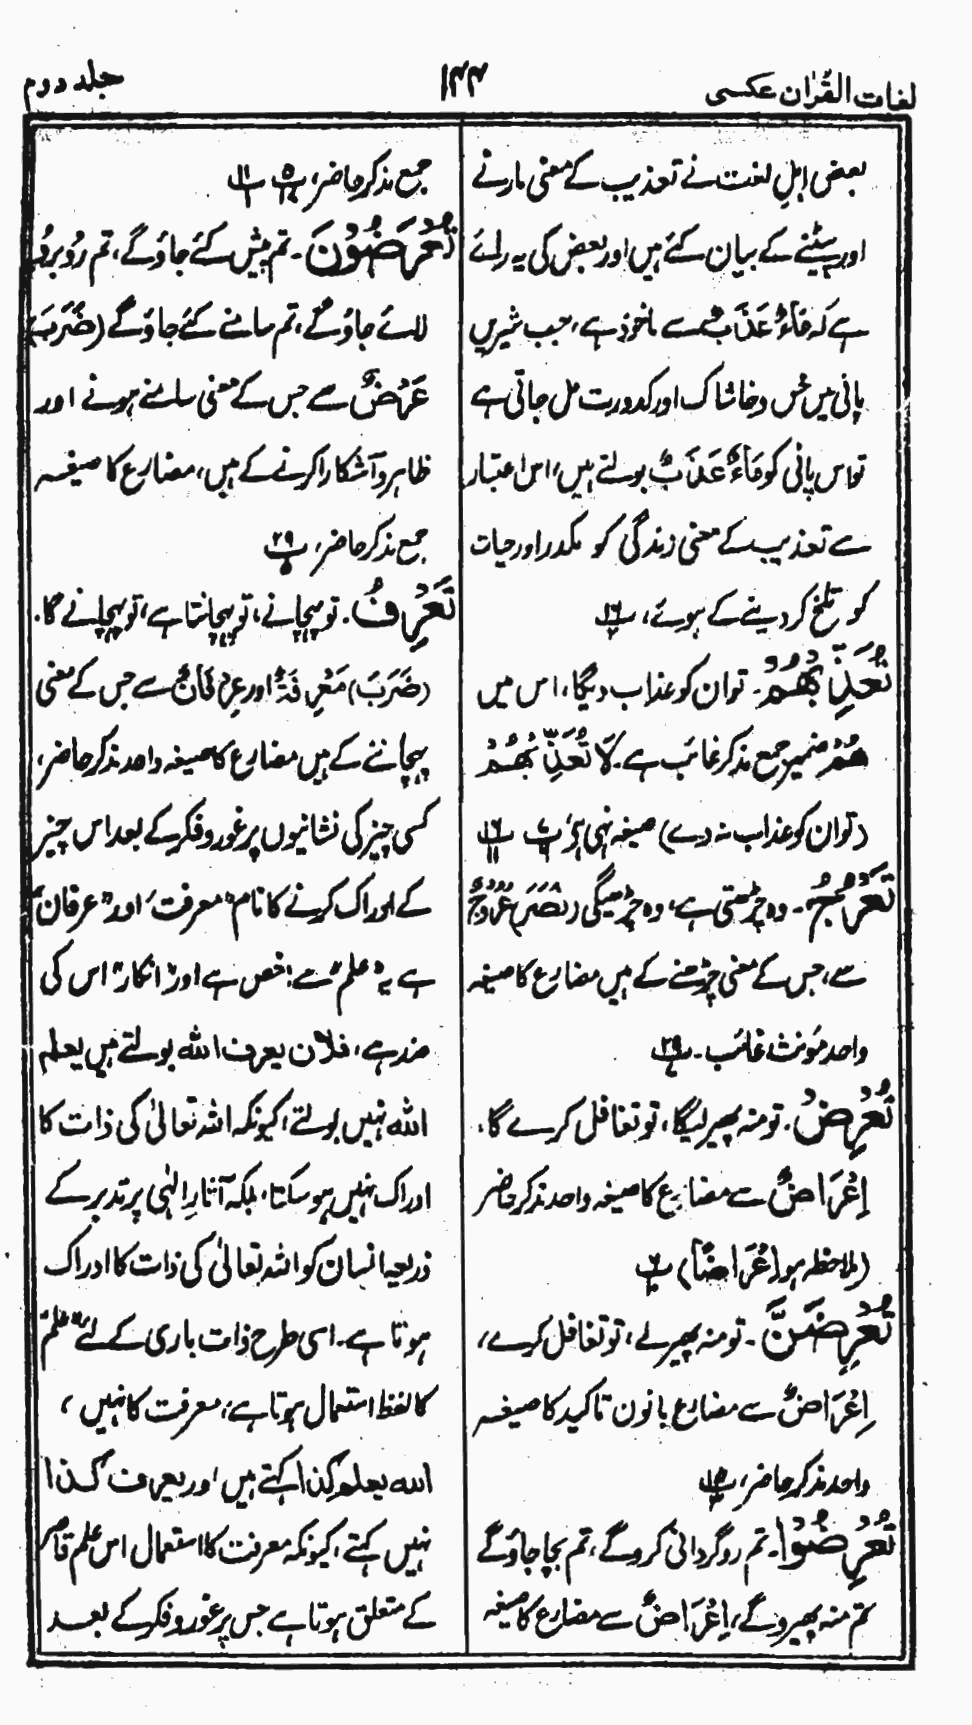 لغات القُرآن عکسی
۱۴۴
جلد دوم
بعض اہلِ لغت نے تعذیب کے معنی مارنے
اور پیٹنے کے بیان کئے ہیں اور بعض کی یہ رائے
ہے کہ مَاءٌ عَذَابٌ سے ماخوذ ہے، جب شیریں
پانی میں خس و خاشاک اور کدورت مل جاتی ہے
تو اس پانی کو مَاءٌ عَذَابٌ بولتے ہیں، اس اعتبار
سے تعذیب کے معنی زندگی کو مکدر اور حیات
کو تلخ کر دینے کے ہوئے،
تُعَذِّبْهُمْ۔ تو ان کو عذاب دیگا، اس میں
هُمْ ضمیر جمع مذکر غائب ہے۔ لَا تُعَذِّبْهُمْ
(تو ان کو عذاب نہ دے) صیغہ نہی ہے،
تَعْرُجُ۔ وہ چڑھتی ہے، وہ چڑھیگی (نَصَرَ) عُرُوْجٌ
سے، جس کے معنی چڑھنے کے ہیں مضارع کا صیغہ
واحد مؤنث غائب۔ پ۲۹
تُعْرِضُ۔ تو منہ پھیر لیگا، تو تغافل کرے گا،
اِعْرَاضٌ سے مضارع کا صیغہ واحد مذکر حاضر
(ملاحظہ ہو اِعْرَاضًا)
تُعْرِضَنَّ۔ تو منہ پھیر لے، تو تغافل کرے،
اِعْرَاضٌ سے مضارع بانون تاکید کا صیغہ
واحد مذکر حاضر، پ۱۵
تُعْرِضُوْا۔ تم روگردانی کرو گے، تم بچا جاؤ گے
تم منہ پھیرو گے، اِعْرَاضٌ سے مضارع کا صیغہ
جمع مذکر حاضر،
تُعْرَضُوْنَ۔ تم پیش کئے جاؤ گے، تم رُو برو
لائے جاؤ گے، تم سامنے کئے جاؤ گے (ضَرَبَ)
عَرْضٌ سے جس کے معنی سامنے ہونے اور
ظاہر و آشکارا کرنے کے ہیں، مضارع کا صیغہ
جمع مذکر حاضر، پ۲۹
تَعْرِفُ۔ تو پہچانے، تو پہچانتا ہے، تو پہچانے گا۔
(ضَرَبَ) مَعْرِفَةٌ اور عِرْفَانٌ سے جس کے معنی
پہچاننے کے ہیں مضارع کا صیغہ واحد مذکر حاضر،
کسی چیز کی نشانیوں پر غور و فکر کے بعد اس چیز
کے ادراک کرنے کا نام "معرفت" اور "عرفان"
ہے یہ "علم" سے اخص ہے اور "انکار" اس کی
ضد ہے، فلان یعرف اللہ بولتے ہیں یعلم
اللہ نہیں بولتے، کیونکہ اللہ تعالیٰ کی ذات کا
ادراک نہیں ہو سکتا، بلکہ آثارِ الٰہی پر تدبر کے
ذریعہ انسان کو اللہ تعالیٰ کی ذات کا ادراک
ہوتا ہے۔ اسی طرح ذات باری کے لئے "علم"
کا لفظ استعمال ہوتا ہے، معرفت کا نہیں،
اللہ یعلم کذا کہتے ہیں اور یعرف کذا
نہیں کہتے، کیونکہ معرفت کا استعمال اس علم قاصر
کے متعلق ہوتا ہے جس پر غور و فکر کے بعد